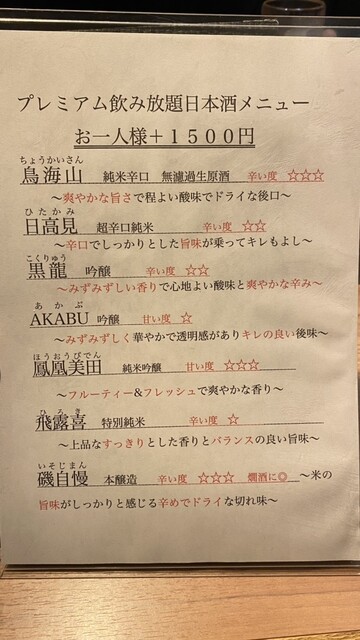 プレミアム飲み放題日本酒メニュー
お一人様＋１５００円
ちょうかいさん
鳥海山 純米辛口 無濾過生原酒 辛い度 ☆☆☆
～爽やかな旨さで程よい酸味でドライな後口～
ひたかみ
日高見 超辛口純米 辛い度 ☆☆
～辛口でしっかりとした旨味が乗ってキレもよし～
こくりゅう
黒龍 吟醸 辛い度 ☆☆
～みずみずしい香りで心地よい酸味と爽やかな辛み～
あかぶ
AKABU 吟醸 甘い度 ☆
～みずみずしく華やかで透明感がありキレの良い後味～
ほうおうびでん
鳳凰美田 純米吟醸 甘い度 ☆☆☆
～フルーティー&フレッシュで爽やかな香り～
ひろき
飛露喜 特別純米 辛い度 ☆
～上品なすっきりとした香りとバランスの良い旨味～
いそじまん
磯自慢 本醸造 辛い度 ☆☆☆ 燗酒に◎ ～米の
旨味がしっかりと感じる辛めでドライな切れ味～